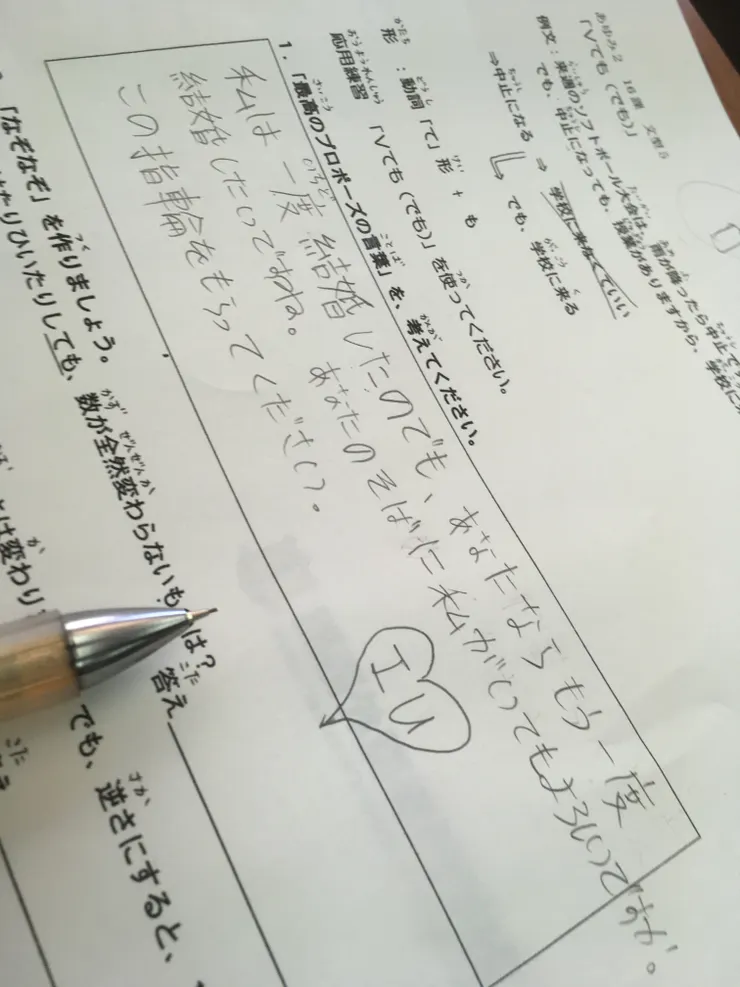 あゆみ2 16課 文型5
「Vても（でも）」
例文：来週のソフトボール大会は、雨が降ったら中止で
でも、中止になっても、授業がありますから、学校に
⇒中止になる ⇒ 学校に来なくていい
でも、学校に来る
形 ：動詞「て」形 + も
応用練習 「Vても（でも）」を使ってください。
1．「最高のプロポーズの言葉」を、考えてください。
私は一度結婚したのでも、あなたならもう一度
結婚したいですね。あなたのそばに私がいてもよろしいですか。
この指輪をもらってください。
IU
「なぞなぞ」を作りましょう。
たりひいたりしても、数が全然変わらないも は？
答え
は変わり でも、逆さにすると、